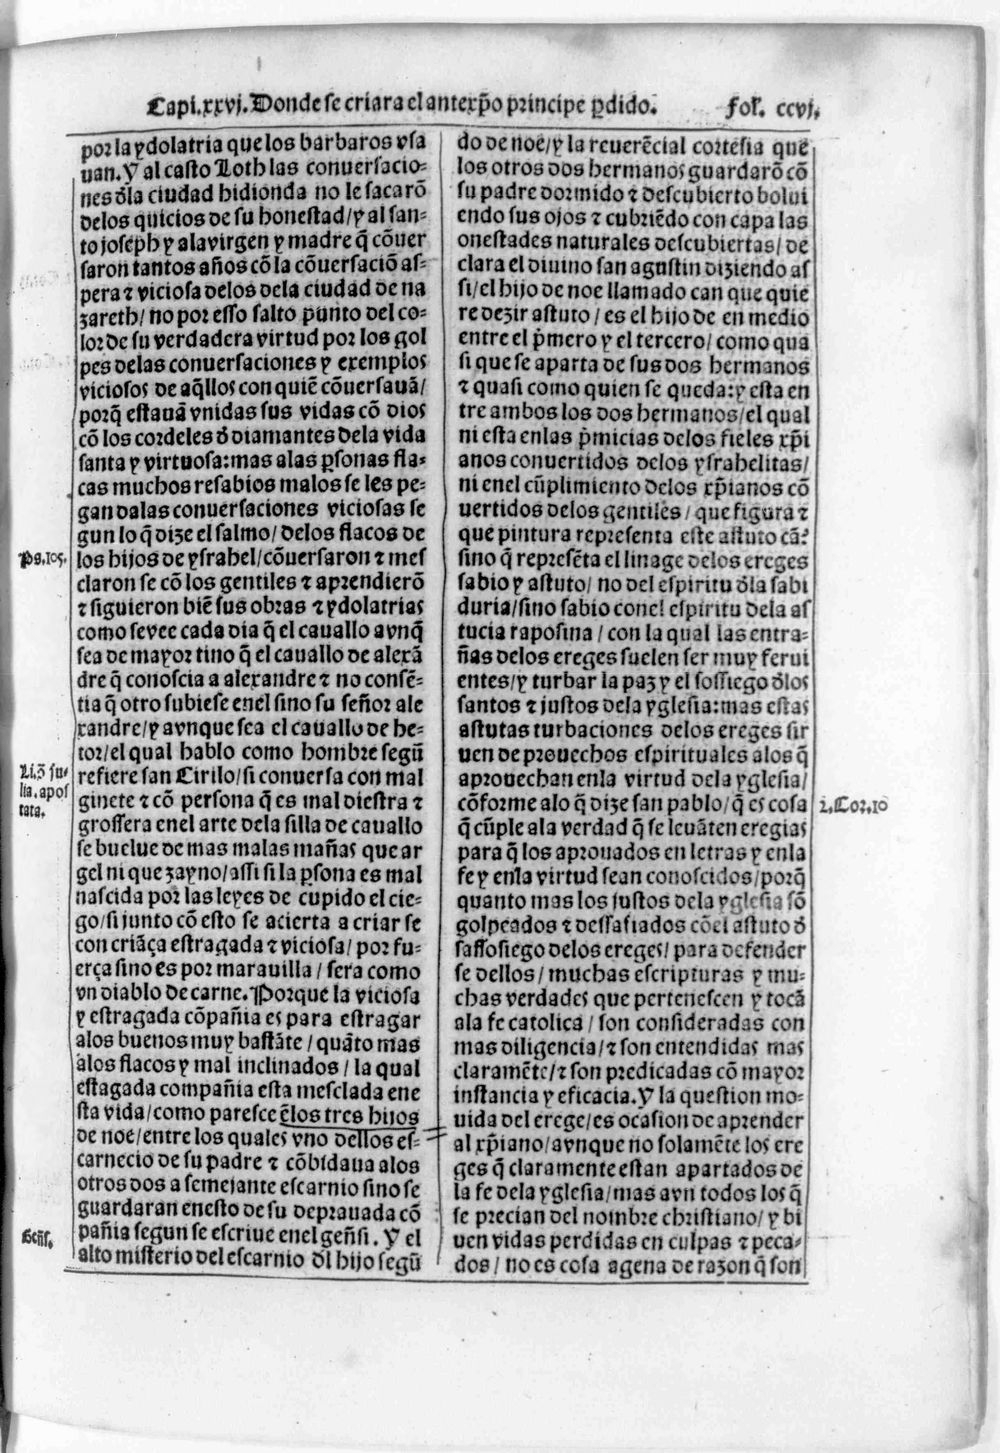 Capi.xxvj.Donde se criara el antexp̄o principe ꝑdido. fol. ccvj.
por la ydolatria que los barbaros vsa
uan.Y al casto Loth las conuersacio-
nes d̄la ciudad hidionda no le sacarō
delos quicios de su honestad/y al san-
to joseph y ala virgen y madre q̄ cōuer
saron tantos años cō la cōuersaciō as-
pera ⁊ viciosa delos dela ciudad de na
zareth/no por esso salto punto del co-
lor de su verdadera virtud por los gol
pes delas conuersaciones y exemplos
viciosos de aq̄llos con quiē cōuersauā/
porq̄ estauā vnidas sus vidas cō dios
cō los cordeles d̄ diamantes dela vida
santa y virtuosa:mas alas ꝑsonas fla-
cas muchos resabios malos se les pe-
gan dalas conuersaciones viciosas se
gun lo q̄ dize el salmo/delos flacos de
Ps.105.
los hijos de ysrahel/cōuersaron ⁊ mes
claron se cō los gentiles ⁊ aprendierō
⁊ siguieron biē sus obras ⁊ ydolatrias
como se vee cada dia q̄ el cauallo avnq̄
sea de mayor tino q̄ el cauallo de alexā
dre q̄ conoscia a alexandre ⁊ no consē-
tia q̄ otro subiese enel sino su señor ale
xandre/y avnque sea el cauallo de he-
tor/el qual hablo como hombre segū
Li.3 ju-
lia.apos
tata.
refiere san Cirilo/si conuersa con mal
ginete ⁊ cō persona q̄ es mal diestra ⁊
grossera enel arte dela silla de cauallo
se buelue de mas malas mañas que ar
gel ni que zayno/assi si la ꝑsona es mal
nascida por las leyes de cupido el cie-
go/si junto cō esto se acierta a criar se
con criāça estragada ⁊ viciosa/por fu-
erça sino es por marauilla/sera como
vn diablo de carne.Porque la viciosa
y estragada cōpañia es para estragar
alos buenos muy bastāte/quāto mas
alos flacos y mal inclinados/la qual
estagada compañia esta mesclada ene
sta vida/como paresce ēlos tres hijos
de noe/entre los quales vno dellos es-
carnecio de su padre ⁊ cōbidaua alos
otros dos a semejante escarnio sino se
guardaran enesto de su deprauada cō
Genīs.
pañia segun se escriue enel genīsi.Y el
alto misterio del escarnio d̄l hijo segū
do de noe/y la reuerēcial cortesia que
los otros dos hermanos guardarō cō
su padre dormido ⁊ descubierto bolui
endo sus ojos ⁊ cubriēdo con capa las
onestades naturales descubiertas/de
clara el diuino san agustin diziendo as
si/el hijo de noe llamado can que quie
re dezir astuto/es el hijo de en medio
entre el p̄mero y el tercero/como qua
si que se aparta de sus dos hermanos
⁊ quasi como quien se queda:y esta en
tre ambos los dos hermanos/el qual
ni esta enlas p̄micias delos fieles xp̄i
anos conuertidos delos ysrahelitas/
ni enel cūplimiento delos xp̄ianos cō
uertidos delos gentiles/que figura ⁊
que pintura representa este astuto cā?
sino q̄ represēta el linage delos ereges
sabio y astuto/no del espiritu d̄la sabi
duria/sino sabio conel espiritu dela as
tucia raposina/con la qual las entra-
ñas delos ereges suelen ser muy ferui
entes/y turbar la paz y el sossiego d̄los
santos ⁊ justos dela yglesia:mas estas
astutas turbaciones delos ereges sir
uen de prouechos espirituales alos q̄
aprouechan enla virtud dela yglesia/
cōforme alo q̄ dize san pablo/q̄ es cosa
1.Cor.10
q̄ cūple ala verdad q̄ se leuāten eregias
para q̄ los aprouados en letras y enla
fe y enla virtud sean conoscidos/porq̄
quanto mas los justos dela yglesia sō
golpeados ⁊ dessafiados cōel astuto d̄
saffosiego delos ereges/para defender
se dellos/muchas escripturas y mu-
chas verdades que pertenescen y tocā
ala fe catolica/son consideradas con
mas diligencia/⁊ son entendidas mas
claramēte/⁊ son predicadas cō mayor
instancia y eficacia.Y la question mo-
uida del erege/es ocasion de aprender
al xp̄iano/avnque no solamēte los ere
ges q̄ claramente estan apartados de
la fe dela yglesia/mas avn todos los q̄
se precian del nombre christiano/y bi
uen vidas perdidas en culpas ⁊ peca-
dos/no es cosa agena de razon q̄ son